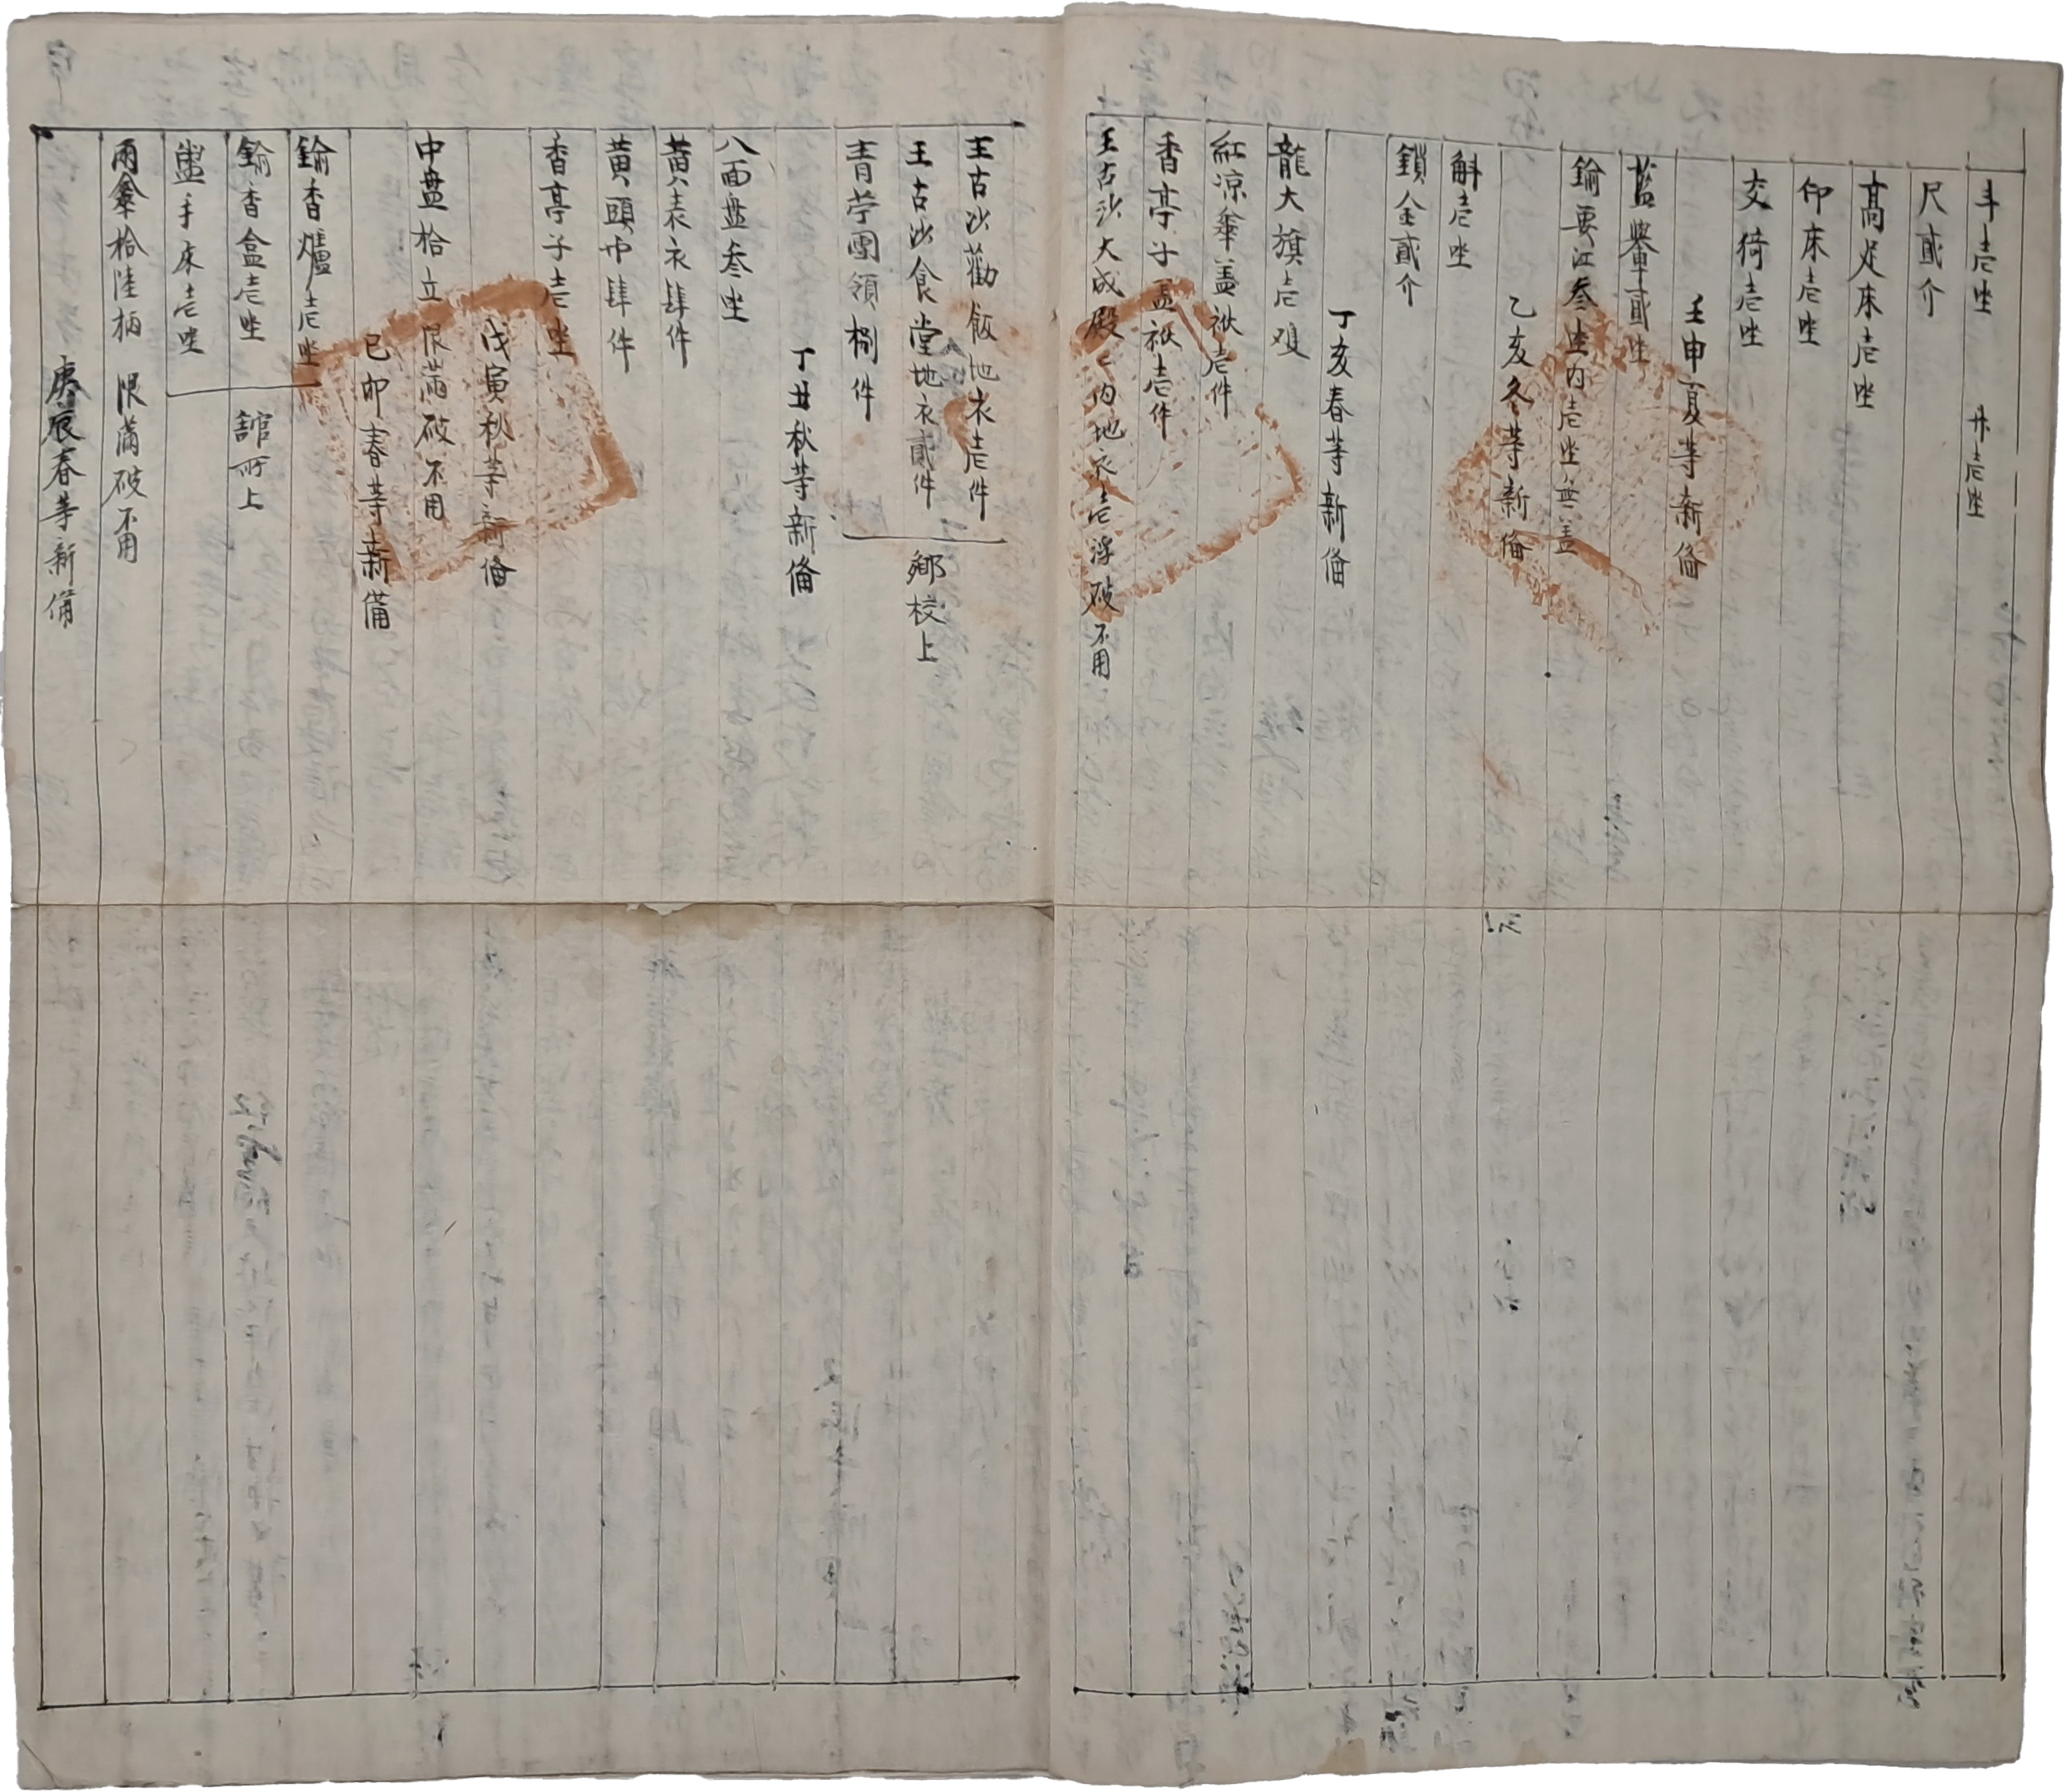 斗壱坐 升壱坐
尺貳介
高足床壱坐
仰床壱坐
交倚壱坐
壬申夏等新俻
藍輿貳坐
鍮要江叁坐內壱坐無盖
乙亥冬等新俻
斛壱坐
鎖金貳介
丁亥春等新俻
龍大旗壱双
紅凉傘盖袱壱件
香亭子盖袱壱件
王古沙大成殿殿內地衣壱浮破不用
王古沙勸飯地衣壱件
王古沙食堂地衣貳件 鄉校上
靑苧團領捌件
丁丑秋等新俻
八面盘叁坐
黃表衣肆件
黃頭巾肆件
香亭子壱坐
戊寅秋等新俻
中盘拾立限滿破不用
己卯春等新備
鍮香爐壱坐
鍮香盒壱坐 舘所上
盥手床壱坐
雨傘拾陸柄 限滿破不用
庚辰春等新備